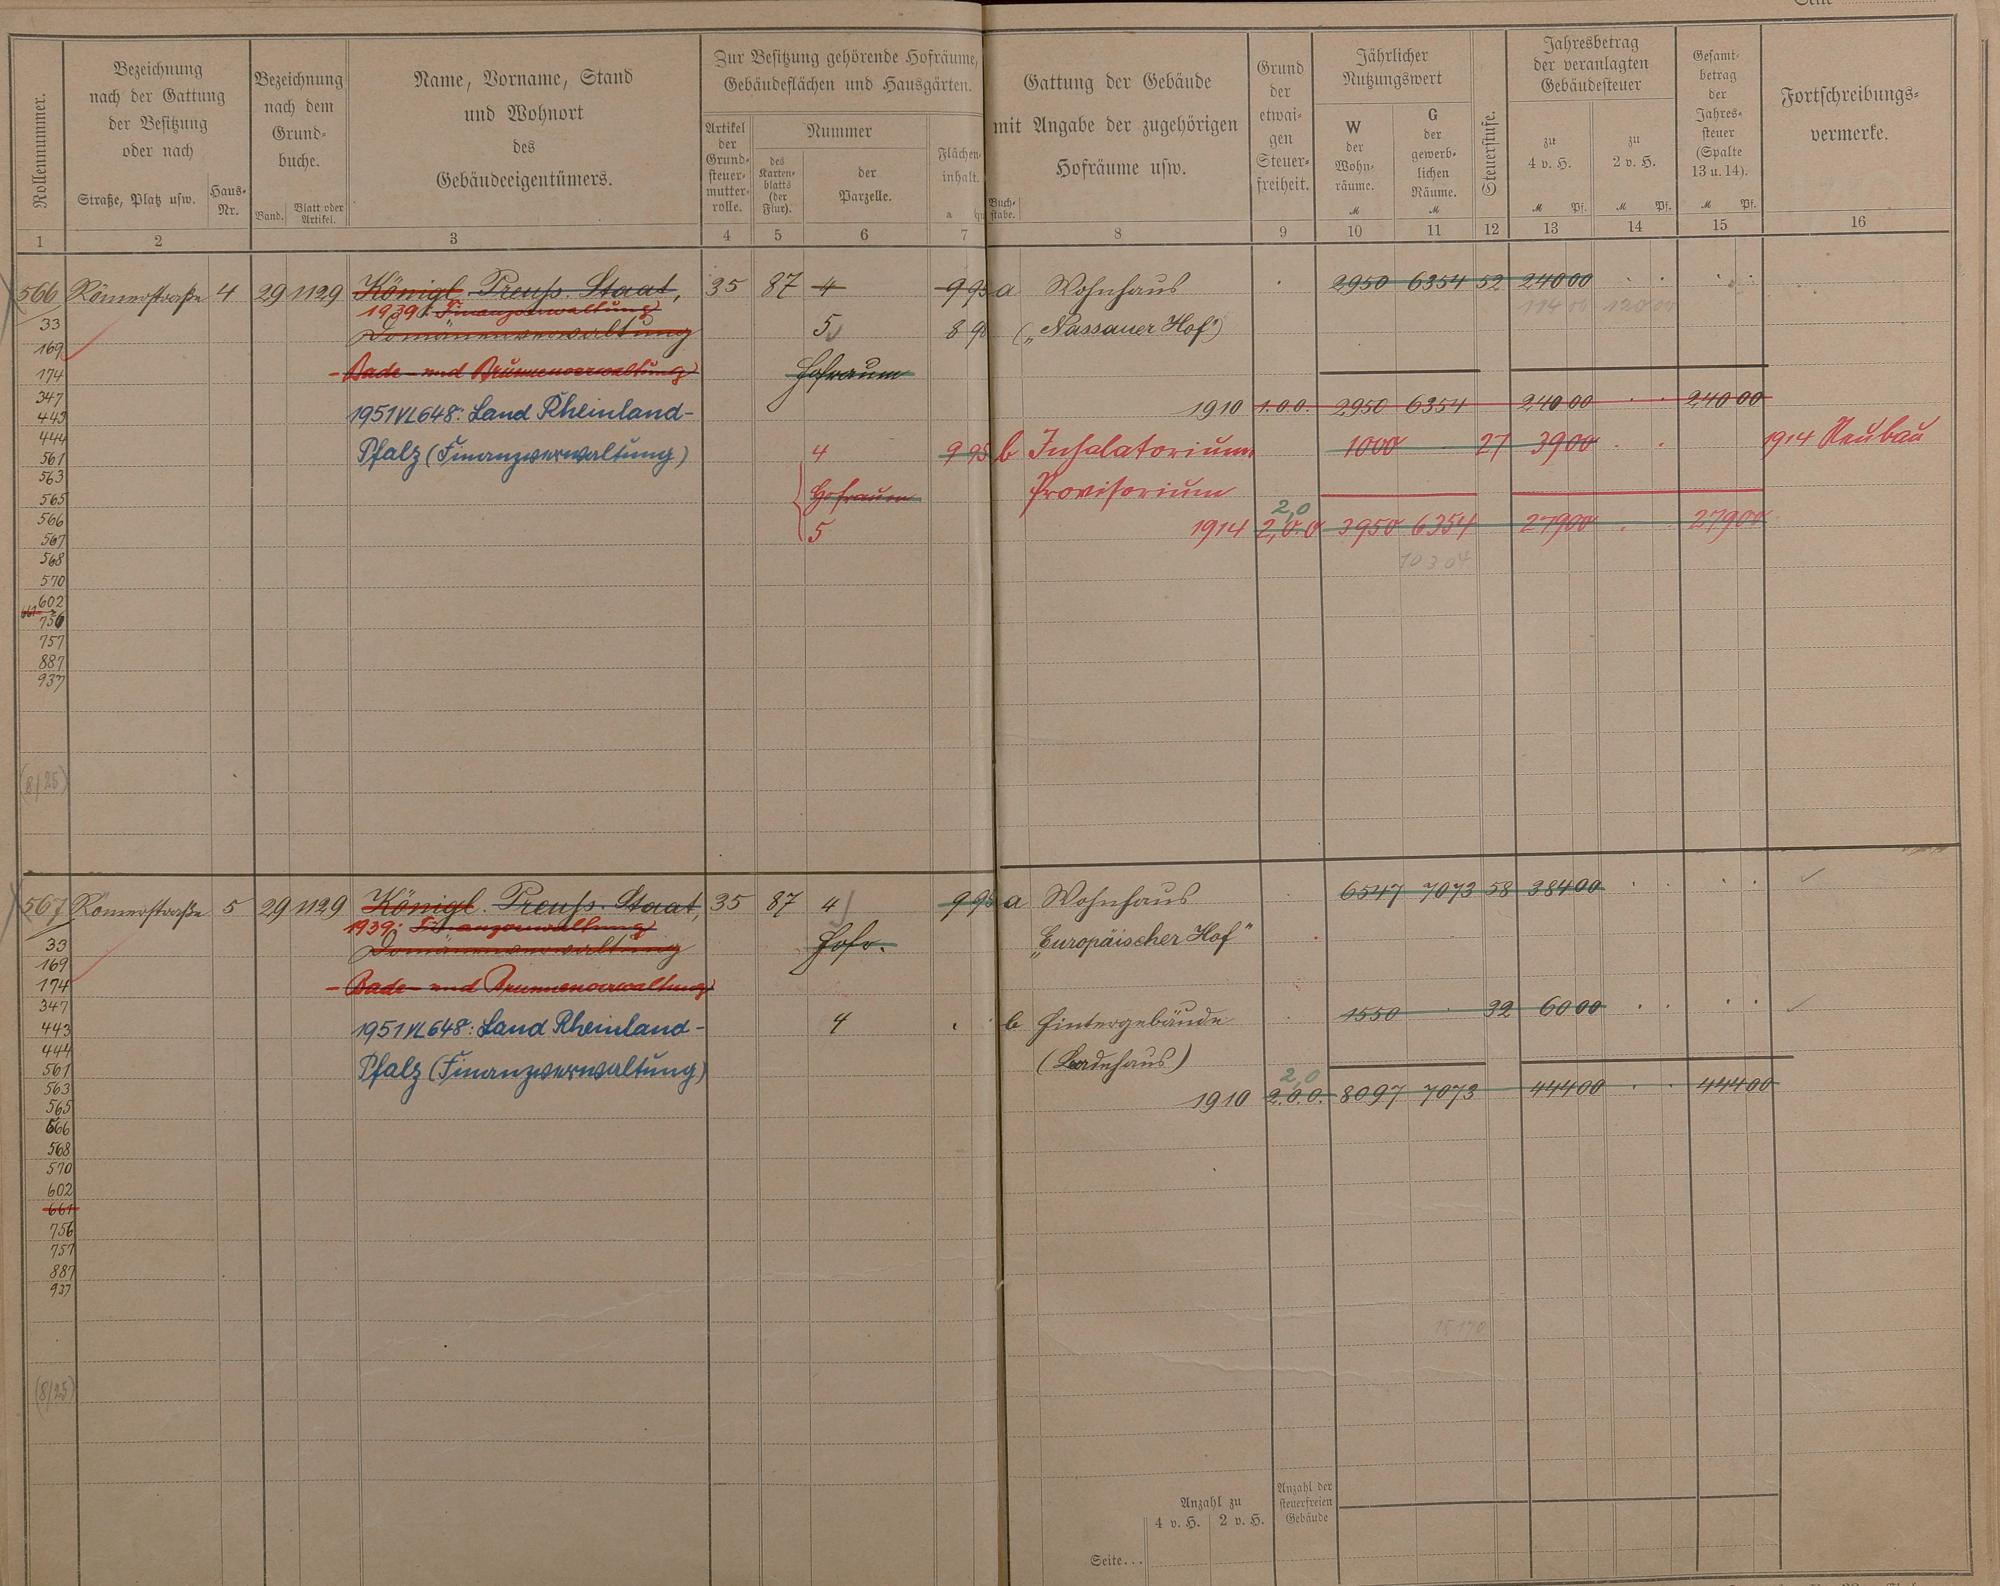 Seite
Rollennummer.
Bezeichnung
nach der Gattung
der Besitzung
oder nach
Straße, Platz usw.
Haus-
Nr.
Bezeichnung
nach dem
Grund-
buche.
Band.
Blatt oder
Artikel.
Name, Vorname, Stand
und Wohnort
des
Gebäudeeigentümers.
Zur Besitzung gehörende Hofräume,
Gebäudeflächen und Hausgärten.
Artikel
der
Grund-
steuer-
mutter-
rolle.
Nummer
des
Karten-
blatts
(der
Flur).
der
Parzelle.
Flächen-
inhalt.
a
Buch-
stabe.
Gattung der Gebäude
mit Angabe der zugehörigen
Hofräume usw.
Grund
der
etwai-
gen
Steuer-
freiheit.
Jährlicher
Nutzungswert
W
der
Wohn-
räume.
M
G
der
gewerb-
lichen
Räume.
M
Steuerstufe.
Jahresbetrag
der veranlagten
Gebäudesteuer
zu
4 v. H.
M Pf.
zu
2 v. H.
M Pf.
Gesamt-
betrag
der
Jahres-
steuer
(Spalte
13 u. 14).
M Pf.
Fortschreibungs-
vermerke.
1 2 3 4 5 6 7 8 9 10 11 12 13 14 15 16
566 Römerstraße 4 29 1129 Königl. Preuß. Staat, 35 87 4 9 95 a Wohnhaus 2950 6354 52 240 00
1939: Finanzverwaltung
33 Domänenverwaltung 5 8 90 („Nassauer Hof")
169
174 - Bade- und Brunnenverwaltung Hofraum
347
443 1951 VL 648: Land Rheinland- 1910 1.0.0. 2950 6354 240 00 240 00
444
561 Pfalz (Finanzverwaltung) 4 9 95 b Inhalatorium 1000 27 39 00 1914 Neubau
563
565 Hofraum Provisorium
566 2,0
567 5 1914 2,0.0 3950 6354 279 00 279 00
568 10304
570
602
661
756
757
887
937
(8/25)
567 Römerstraße 5 29 1129 Königl. Preuß. Staat, 35 87 4 9 95 a Wohnhaus 6547 7073 58 384 00
1939: Finanzverwaltung
33 Domänenverwaltung Hofr. „Europäischer Hof"
169
174 - Bade- und Brunnenverwaltung
347
443 1951 VL 648: Land Rheinland- 4 b Hintergebäude 1550 32 60 00
444
561 Pfalz (Finanzverwaltung) (Badehaus)
563 2,0
565 1910 2.0.0. 8097 7073 444 00 444 00
566
568
570
602
661
756
757
887
937
15170
(8/25)
Anzahl zu
4 v. H.
2 v. H.
Anzahl der
steuerfreien
Gebäude
Seite...